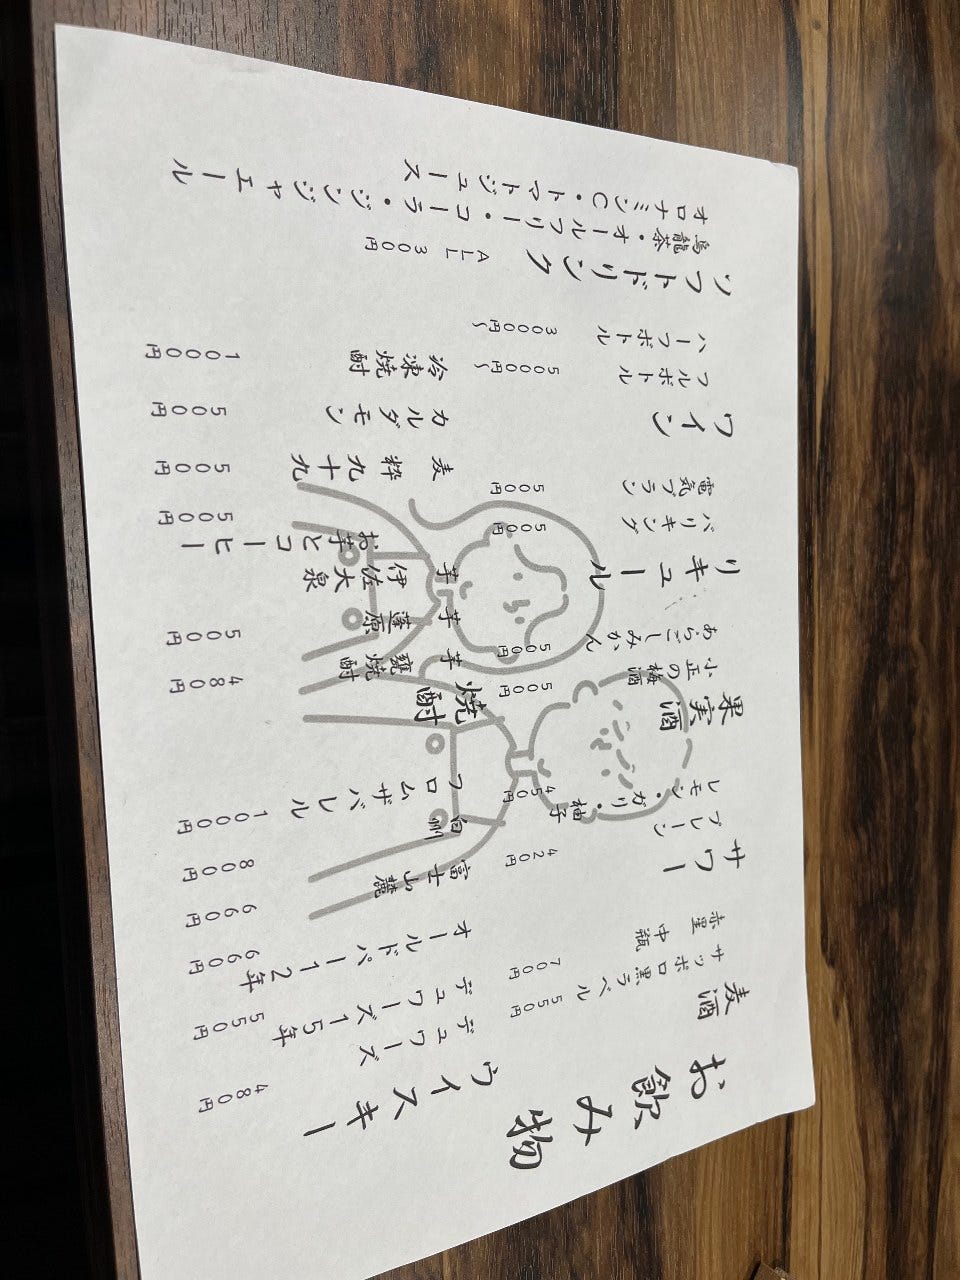 お飲み物
麦酒
サッポロ黒ラベル 550円
赤星 中瓶 700円
サワー
プレーン 420円
レモン・ガリ・柚子 450円
果実酒
小正の梅酒 500円
あらごしみかん 500円
リキュール
バリキング 500円
電気ブラン 500円
ワイン
フルボトル 5000円〜
ハーフボトル 3000円〜
ソフトドリンク ALL 300円
烏龍茶・オールフリー・コーラ・ジンジャエール
オロナミンC・トマトジュース
ウイスキー
デュワーズ 480円
デュワーズ15年 550円
オールドパー12年 660円
富士山麓 660円
白州 800円
フロムザバレル 1000円
焼酎
芋 甕焼酎 480
芋 蓬原 500円
芋 伊佐大泉
お芋とコーヒー 500円
麦 粋九十九 500円
カルダモン 500円
冷凍焼酎 1000円